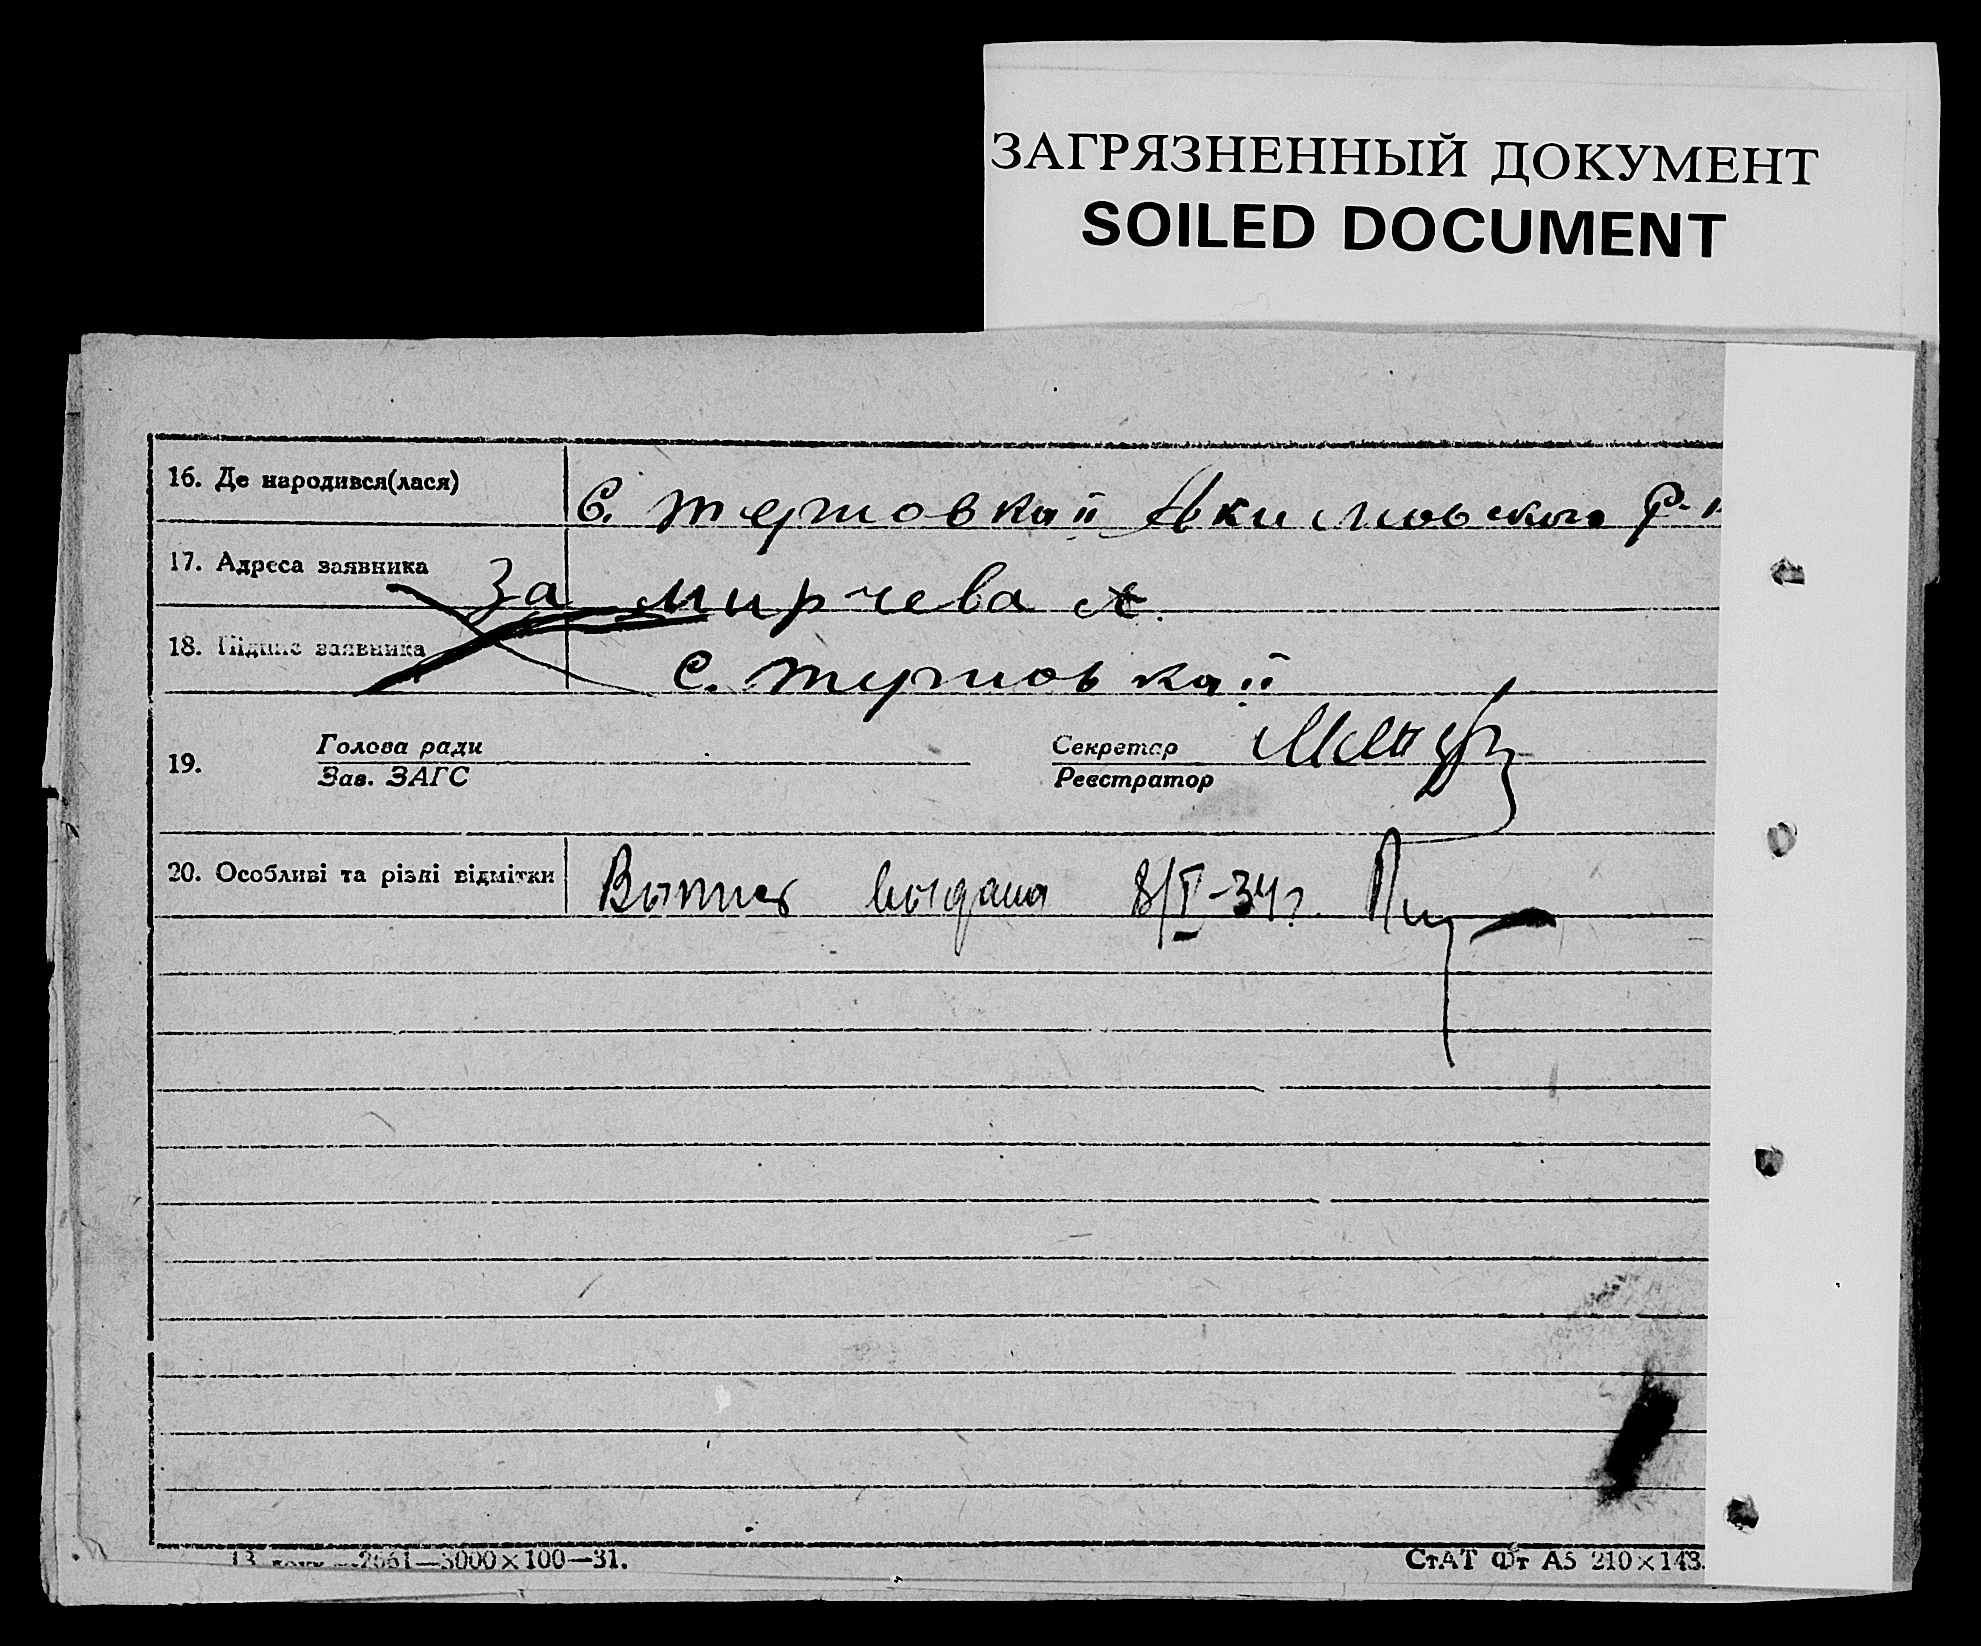 ЗАГРЯЗНЕННЫЙ ДОКУМЕНТ
SOILED DOCUMENT
16. Де народився(лася)
С. Якимовского Р-н
17. Адреса заявника
За Мирчева А.
18. Підпис заявника
С.
19. Голова ради
Зав. ЗАГС
Секретар
Реєстратор
20. Особливі та різні відмітки
Выпись выдана 8/V-34 г.
2661—3000×100—31.
СтАТ Фт А5 210×148.